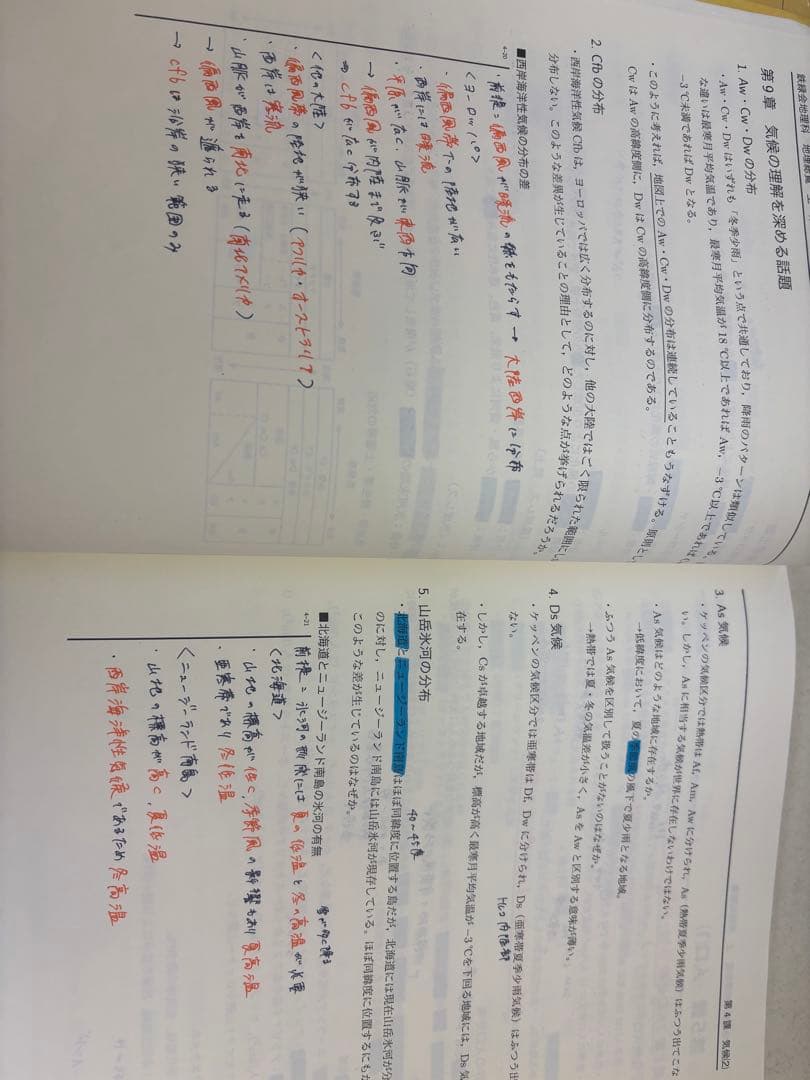 鉄緑会地理科 地理総集
第9章 気候の理解を深める話題
1. Aw・Cw・Dw の分布
・Aw・Cw・Dw はいずれも「冬季少雨」という点で共通しており，降雨のパターンは類似している。
な違いは最寒月平均気温であり，最寒月平均気温が 18 ℃以上であれば Aw，−3 ℃以上であれば
−3 ℃未満であれば Dw となる。
・このように考えれば，地図上での Aw・Cw・Dw の分布は連続していることもうなずける。原則とし
Cw は Aw の高緯度側に，Dw は Cw の高緯度側に分布するのである。
2. Cfb の分布
・西岸海洋性気候 Cfb は，ヨーロッパでは広く分布するのに対し，他の大陸ではごく限られた範囲にし
分布しない。このような差異が生じていることの理由として，どのような点が挙げられるだろうか。
■西岸海洋性気候の分布の差
4-20
・前提：偏西風が暖流の熱をもたらす → 大陸西岸に分布
<ヨーロッパ>
・偏西風帯での陸地が広い
・西岸には暖流
・平原が広く、山脈が東西方向
→ 偏西風が内陸まで及ぶ
⇒ cfb が広く分布する
<他の大陸>
・偏西風帯の陸地が狭い (アフリカ・オーストラリア)
・西岸は寒流
・山脈が西岸を南北に走る (南北アメリカ)
→ 偏西風が遮られる
→ cfb は沿岸の狭い範囲のみ
第4課 気候(2)
3. As 気候
・ケッペンの気候区分では熱帯は Af，Am，Aw に分けられ，As（熱帯夏季少雨気候）はふつう出てこな
い。しかし，As に相当する気候が世界に存在しないわけではない。
・As 気候はどのような地域に存在するか。
→低緯度において，夏の季節風の風下で夏少雨となる地域。
・ふつう As 気候を区別して扱うことがないのはなぜか。
→熱帯では夏・冬の気温差が小さく，As を Aw と区別する意味が薄い。
4. Ds 気候
・ケッペンの気候区分では亜寒帯は Df，Dw に分けられ，Ds（亜寒帯夏季少雨気候）はふつう出
ない。
・しかし，Cs が卓越する地域だが，標高が高く最寒月平均気温が −3 ℃を下回る地域には，Ds 気
在する。
5. 山岳氷河の分布
40〜45度
・北海道とニュージーランド南島はほぼ同緯度に位置する島だが，北海道には現在山岳氷河が分
のに対し，ニュージーランド南島には山岳氷河が現存している。ほぼ同緯度に位置するにもか
このような差が生じているのはなぜか。
■北海道とニュージーランド南島の氷河の有無
4-21
前提：氷河の形成には夏の低温と冬の高温が重要
<北海道>
・山地の標高が低く、季節風の影響もあり夏高温
・亜寒帯であり冬低温
<ニュージーランド南島>
・山地の標高が高く、夏低温
・西岸海洋性気候であるため冬高温